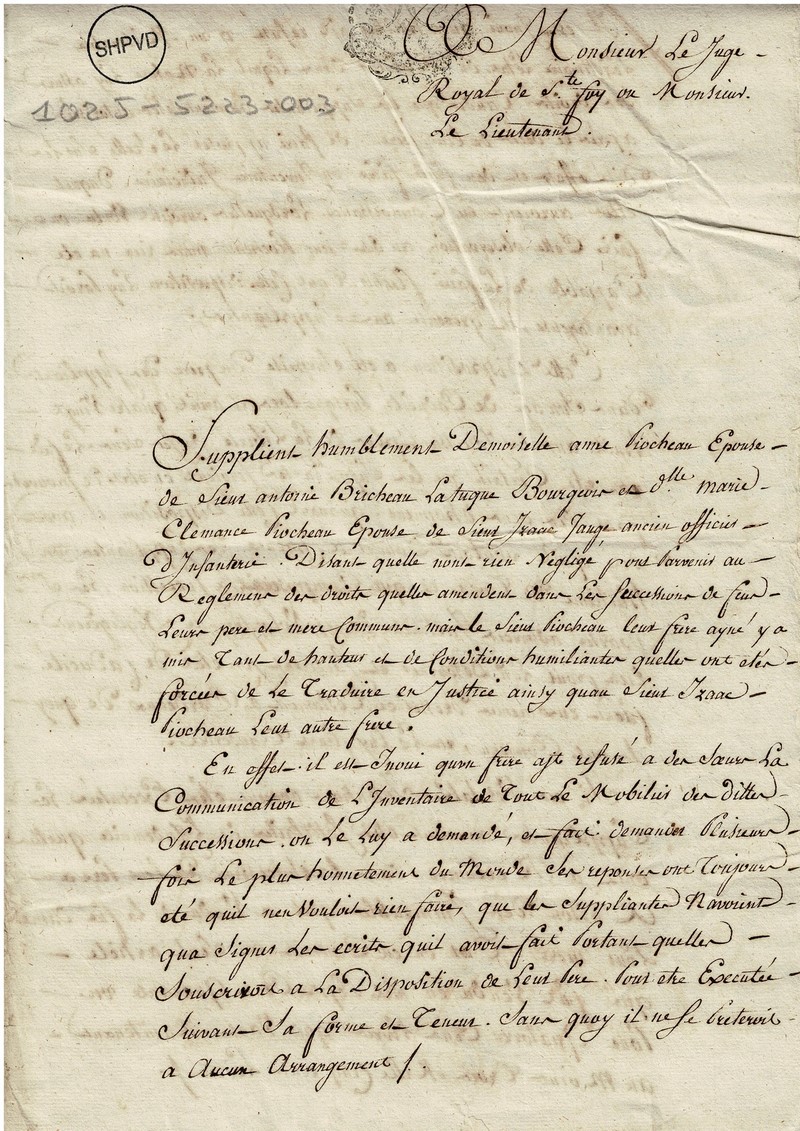 SHPVD
102 J - 5223-003
A Monsieur Le Juge
Royal de Ste foy ou Monsieur
Le Lieutenant.
Supplient humblement Demoiselle anne Piocheau Epouse
de Sieur antoine Bricheau Latuque Bourgeois et dlle marie
Clemance Piocheau Epouse de Sieur Izaac Jauge ancien officier
D'Infanterie. Disant quelle nont rien Négligé pour Parvenir au
Reglement des droits quelles amendent dans Les Successions de feus
Leurs pere et mere Communs. mais le Sieur Piocheau leur frere ayné y a
mis Tant de hauteur et de Conditions humiliantes quelles ont etés
forcées de Le Traduire en Justice ainsy quau Sieur Izaac
Piocheau Leur autre frere.
En effet. il est Inoui quun frere ajt refusé a des Sœurs La
Communication de L'Inventaire de Tout Le Mobilier des dittes
Successions. on Le Luy a demandé, et fait demander Plusieurs
fois Le plus honnetement du Monde Ses reponses ont Toujours
eté quil nen Vouloit rien faire, que les Suppliantes Navoient
qua Signer Les ecrits quil avoit fait Portant quelles
Souscrivoit a La Disposition de Leur Pere. Pour etre Executée
Suivant Sa forme et Teneur. Sans quoy il ne Se Preteroit
a Aucun Arrangement /.